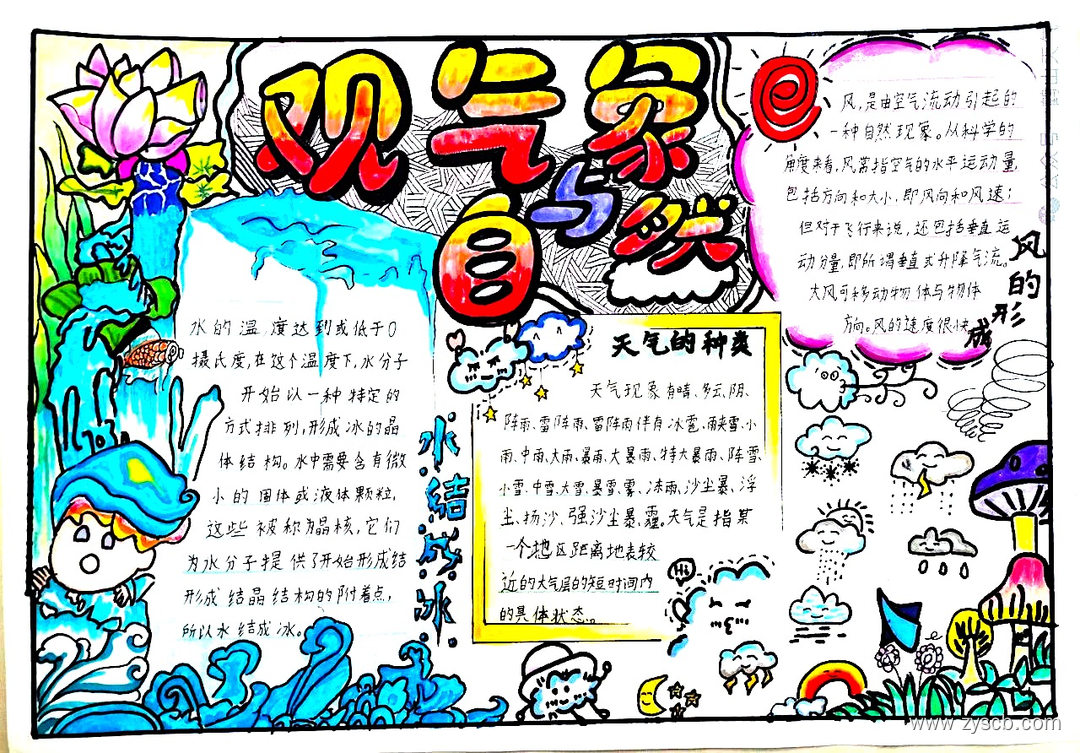 观气象
与
自然
水的温度达到或低于0
摄氏度,在这个温度下,水分子
开始以一种特定的
方式排列,形成冰的晶
体结构。水中需要含有微
小的固体或液体颗粒,
这些被称为晶核,它们
为水分子提供了开始形成结
形成结晶结构的附着点,
所以水结成冰。
水结成冰
天气的种类
天气现象有晴、多云、阴、
阵雨、雷阵雨、雷阵雨伴有冰雹、雨夹雪、小
雨、中雨、大雨、暴雨、大暴雨、特大暴雨、阵雪、
小雪、中雪、大雪、暴雪、雾、冻雨、沙尘暴、浮
尘、扬沙、强沙尘暴、霾。天气是指某
一个地区距离地表较
近的大气层的短时间内
的具体状态。
Hi
风,是由空气流动引起的
一种自然现象。从科学的
角度来看,风常指空气的水平运动量,
包括方向和大小,即风向和风速;
但对于飞行来说,还包括垂直运
动分量,即所谓垂直或升降气流。
大风可移动物体与物体
方向。风的速度很快
风的形成
www.zyscb.com